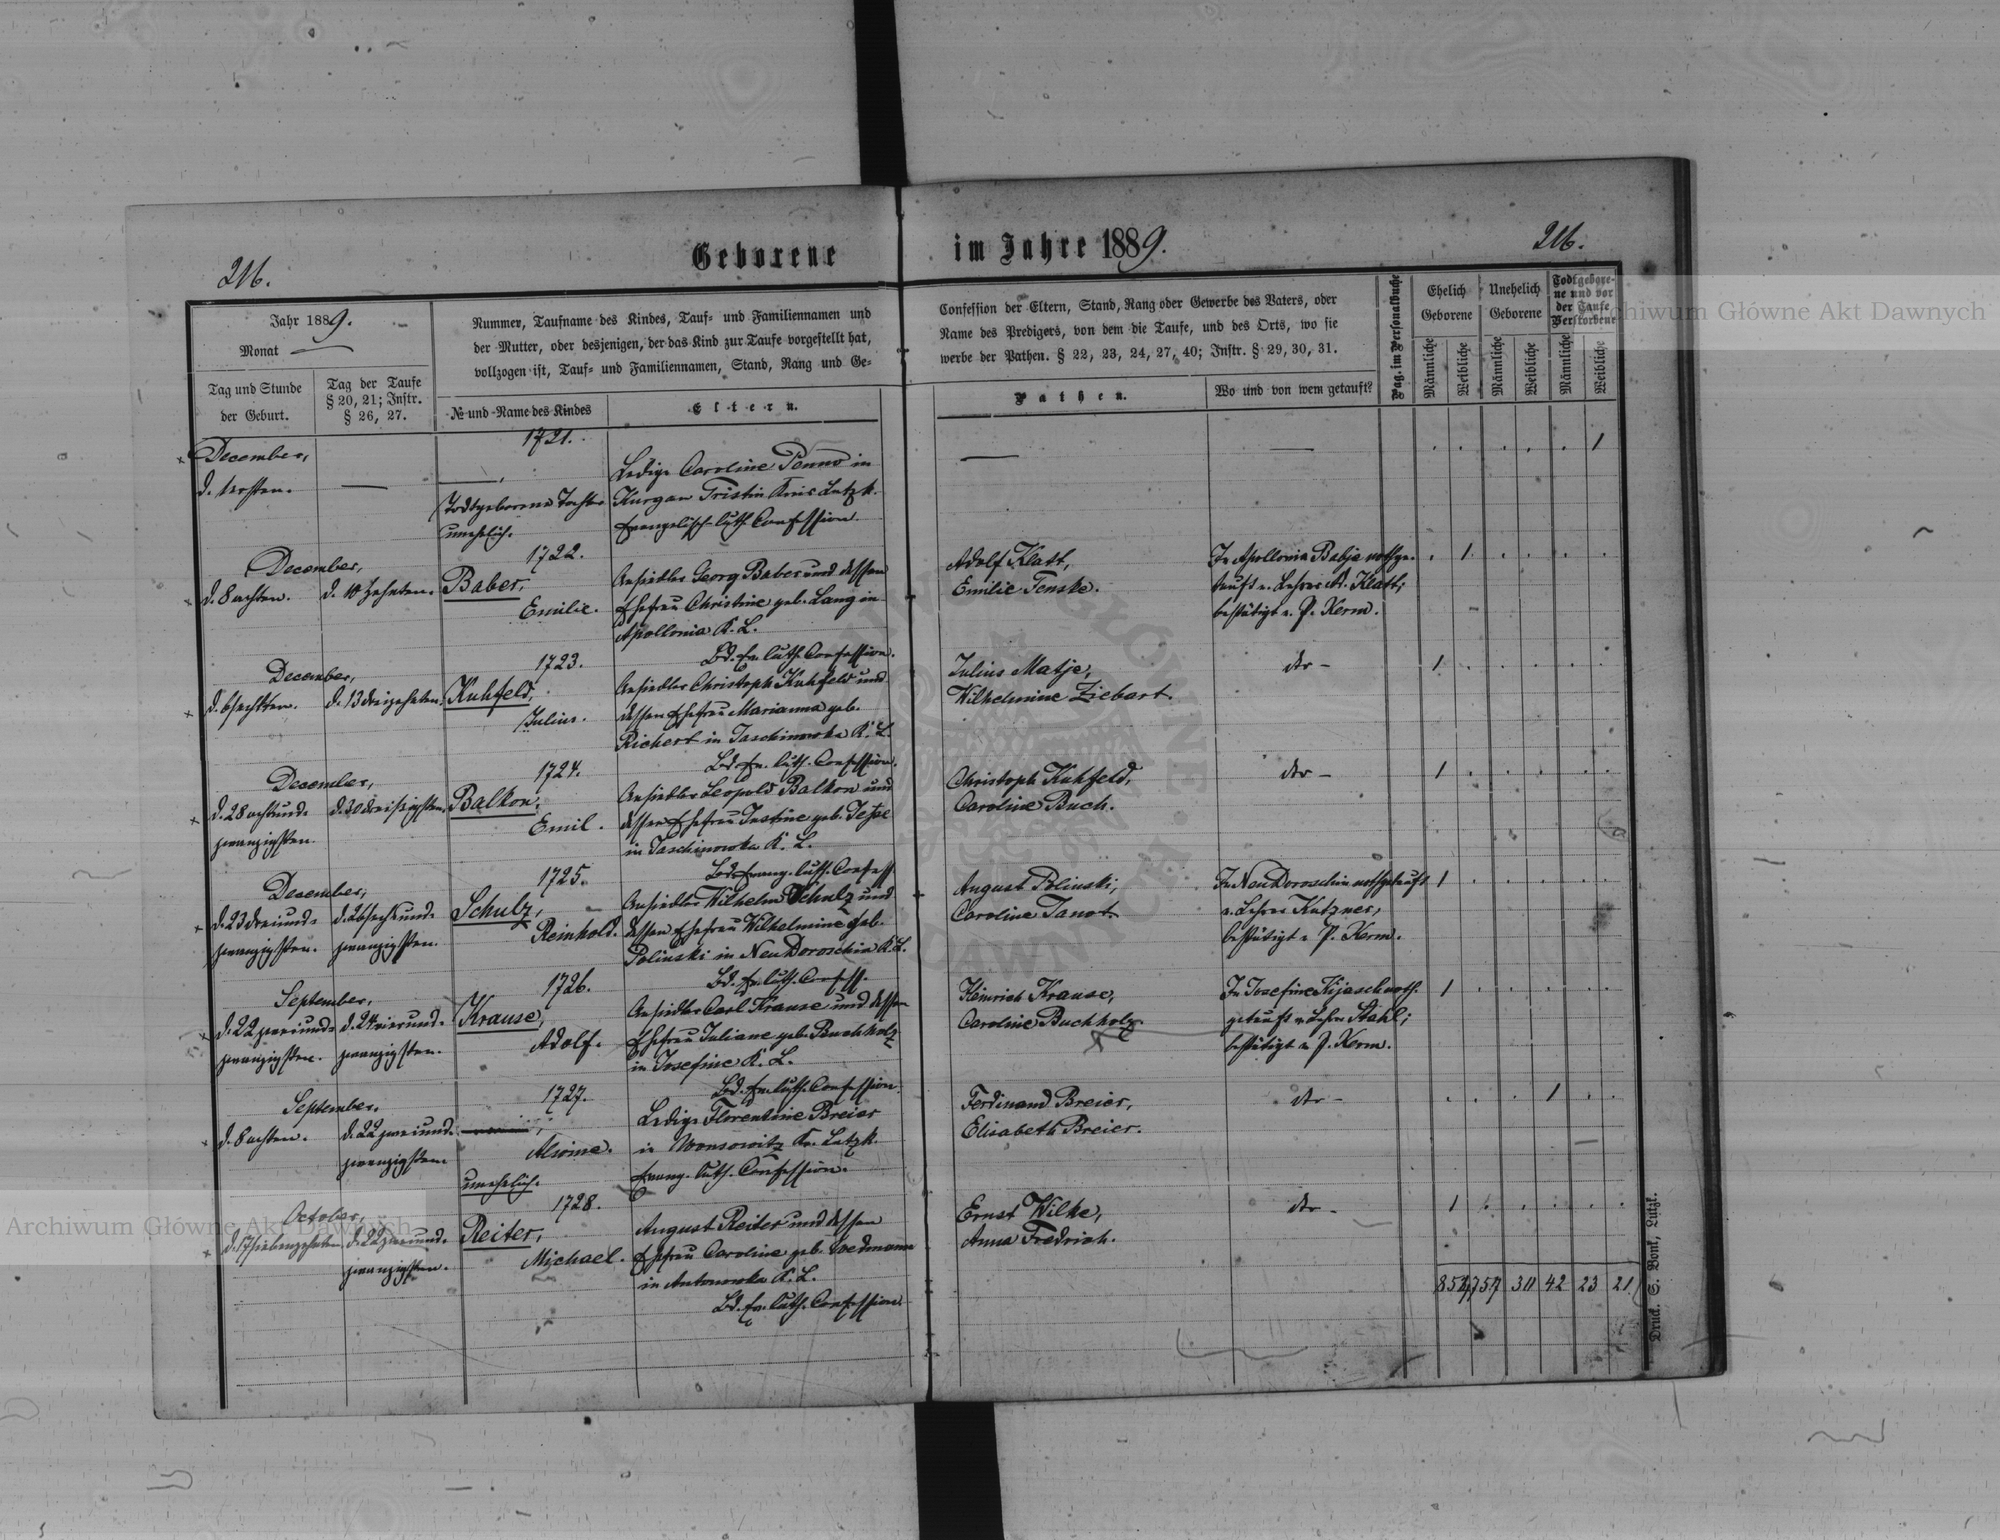 216.
Geborene
im Jahre 1889.
216.
Jahr 1889.
Monat
Tag und Stunde
der Geburt.
Tag der Taufe
§ 20, 21; Instr.
§ 26, 27.
Nummer, Taufname des Kindes, Tauf- und Familiennamen und
der Mutter, oder desjenigen, der das Kind zur Taufe vorgestellt hat,
vollzogen ist, Tauf- und Familiennamen, Stand, Rang und Ge-
№ und Name des Kindes
Eltern.
Confession der Eltern, Stand, Rang oder Gewerbe des Vaters, oder
Name des Predigers, von dem die Taufe, und des Orts, wo sie
werbe der Pathen. § 22, 23, 24, 27, 40; Instr. § 29, 30, 31.
Pathen.
Wo und von wem getauft?
Pag. im Personalbuche
Ehelich
Geborene
Unehelich
Geborene
Todtgebore-
ne und vor
der Taufe
Verstorbene
Männliche
Weibliche
Männliche
Weibliche
Männliche
Weibliche
1721.
December,
d. 1 ersten.
Todtgeborene Tochter
unehelich.
Ledige Caroline Penno in
Kurgan Tristin Kreis Lutzk.
Evangelisch-luth. Confession.
1
1722.
December,
d. 8 achten.
d. 10 zehnten.
Baber,
Emilie.
Ansiedler Georg Baber und dessen
Ehefrau Christine geb. Lang in
Apollonia K. L.
Bd. Ev. luth. Confession.
Adolf Klatt,
Emilie Tenske.
In Apollonia Babje nothge-
tauft v. Lehrer A. Klatt;
bestätigt v. P. Kerm.
1
1723.
December,
d. 6 sechsten.
d. 13 dreizehnten.
Kuhfeld,
Julius.
Ansiedler Christoph Kuhfeld und
dessen Ehefrau Marianna geb.
Richert in Taschinowka K. L.
Bd. Ev. luth. Confession.
Julius Matje,
Wilhelmine Ziebart.
dto -
1
1724.
December,
d. 28 achtund-
zwanzigsten.
d. 30 dreißigsten.
Balkon,
Emil.
Ansiedler Leopold Balkon und
dessen Ehefrau Justine geb. Jesse
in Taschinowka K. L.
Bd. Evang. luth. Confess.
Christoph Kuhfeld,
Caroline Buch.
dto -
1
1725.
December,
d. 23 dreiund-
zwanzigsten.
d. 26 sechsund-
zwanzigsten.
Schulz,
Reinhold.
Ansiedler Wilhelm Schulz und
dessen Ehefrau Wilhelmine geb.
Polinski in Neu Doroschin K. L.
Bd. Ev. luth. Confess.
August Polinski,
Caroline Janot.
In Neu Doroschin nothgetauft
v. Lehrer Kutzner,
bestätigt v. P. Kerm.
1
1726.
September,
d. 22 zweiund-
zwanzigsten.
d. 24 vierund-
zwanzigsten.
Krause,
Adolf.
Ansiedler Carl Krause und dessen
Ehefrau Juliane geb. Buchholz
in Josefine K. L.
Bd. Ev. luth. Confession.
Heinrich Krause,
Caroline Buchholz.
In Josefine Kijasch noth-
getauft v. Lehrer Stahl;
bestätigt v. P. Kerm.
1
1727.
September,
d. 8 achten.
d. 22 zweiund-
zwanzigsten.
Alwine.
unehelich.
Ledige Florentine Breier
in Wonsowitz Kr. Lutzk.
Evang. luth. Confession.
Ferdinand Breier,
Elisabeth Breier.
dto -
1
1728.
October,
d. 17 siebenzehnten.
d. 22 zweiund-
zwanzigsten.
Reiter,
Michael.
August Reiter und dessen
Ehefrau Caroline geb.
in Antonowka K. L.
Bd. Ev. luth. Confession.
Ernst Wilke,
Anna Fredrich.
dto -
1
757 42 23 21
Druck. S. Bonk, Lutzk.
Archiwum Główne Akt Dawnych
Archiwum Główne Akt Dawnych